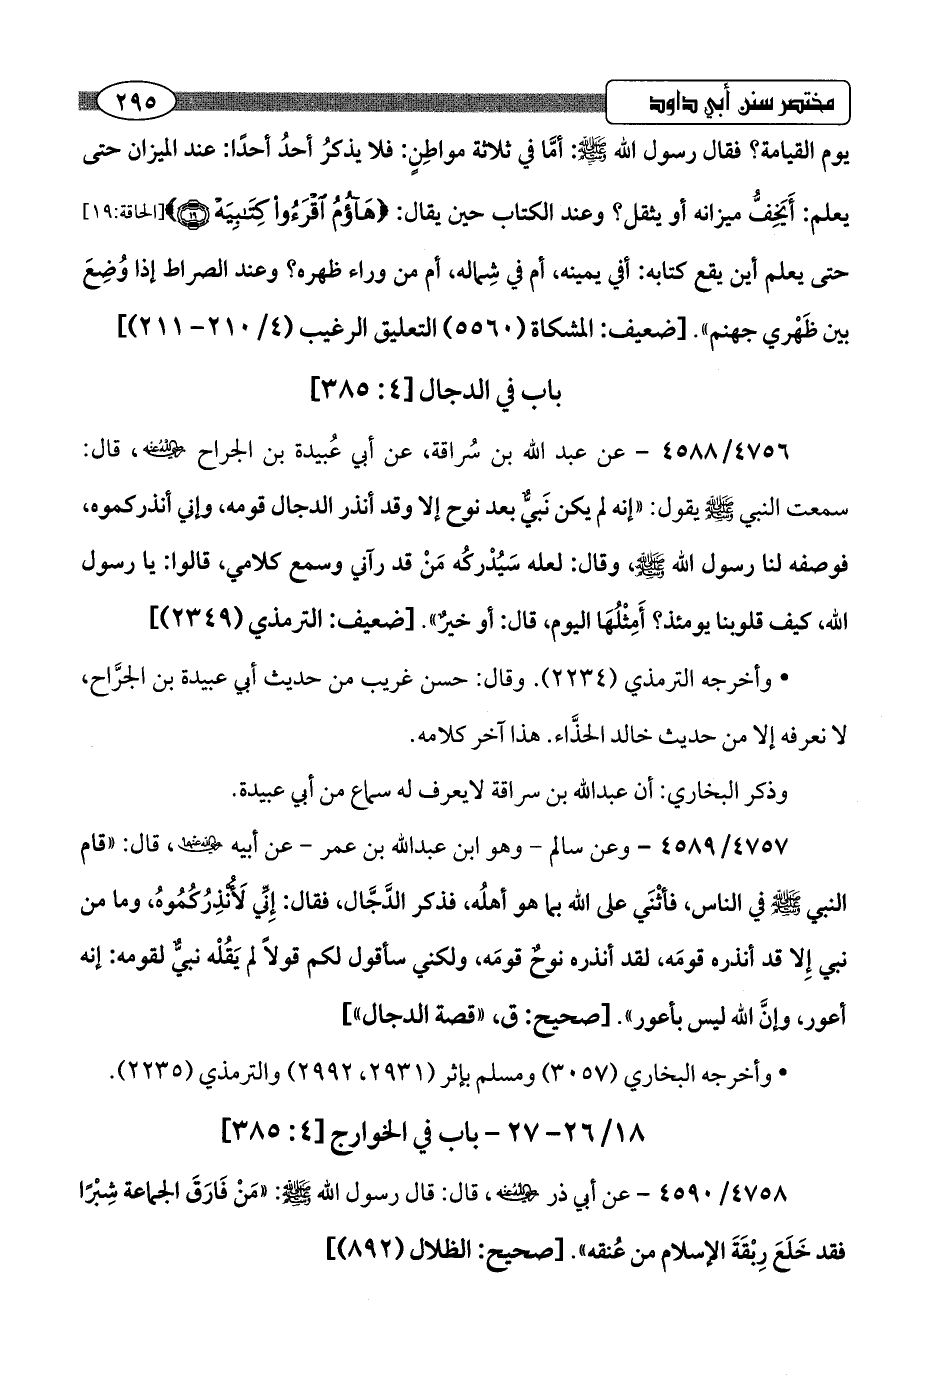 مختصر سنن أبي داود ٢٩٥
يوم القيامة؟ فقال رسول الله ﷺ: أمَّا في ثلاثة مواطِنٍ: فلا يذكرُ أحدُ أحدًا: عند الميزان حتى
يعلم: أَيَخِفُّ ميزانه أو يثقل؟ وعند الكتاب حين يقال: ﴿هَآؤُمُ ٱقْرَءُوا۟ كِتَٰبِيَهْ ١٩﴾[الحاقة:١٩]
حتى يعلم أين يقع كتابه: أفي يمينه، أم في شِماله، أم من وراء ظهره؟ وعند الصراط إذا وُضِعَ
بين ظَهْري جهنم». [ضعيف: المشكاة (٥٥٦٠) التعليق الرغيب (٤/ ٢١٠- ٢١١)]
باب في الدجال [٤: ٣٨٥]
٤٥٨٨/٤٧٥٦ - عن عبد الله بن سُراقة، عن أبي عُبيدة بن الجراح رضي الله عنه، قال:
سمعت النبي ﷺ يقول: «إنه لم يكن نَبيٌّ بعد نوح إلا وقد أنذر الدجال قومه، وإني أنذركموه،
فوصفه لنا رسول الله ﷺ، وقال: لعله سَيُدْركُه مَنْ قد رآني وسمع كلامي، قالوا: يا رسول
الله، كيف قلوبنا يومئذ؟ أَمِثْلُهَا اليوم، قال: أو خيرٌ». [ضعيف: الترمذي (٢٣٤٩)]
• وأخرجه الترمذي (٢٢٣٤). وقال: حسن غريب من حديث أبي عبيدة بن الجَرَّاح،
لا نعرفه إلا من حديث خالد الحذَّاء. هذا آخر كلامه.
وذكر البخاري: أن عبدالله بن سراقة لايعرف له سماع من أبي عبيدة.
٤٥٨٩/٤٧٥٧ - وعن سالم - وهو ابن عبدالله بن عمر - عن أبيه رضي الله عنهما، قال: «قام
النبي ﷺ في الناس، فأثْنَي على الله بما هو أهلُه، فذكر الدَّجَّال، فقال: إنِّي لَأُنْذِرُكُمُوهُ، وما من
نبي إلا قد أنذره قومَه، لقد أنذره نوحٌ قومَه، ولكني سأقول لكم قولاً لم يَقُلْه نبيٌّ لقومه: إنه
أعور، وإنَّ الله ليس بأعور». [صحيح: ق، «قصة الدجال»]
• وأخرجه البخاري (٣٠٥٧) ومسلم بإثر (٢٩٣١، ٢٩٩٢) والترمذي (٢٢٣٥).
٢٦/١٨- ٢٧ - باب في الخوارج [٤: ٣٨٥]
٤٥٩٠/٤٧٥٨ - عن أبي ذر رضي الله عنه، قال: قال رسول الله ﷺ: «مَنْ فَارَقَ الجماعة شِبْرًا
فقد خَلَعَ رِبْقَةَ الإسلام من عُنقه». [صحيح: الظلال (٨٩٢)]